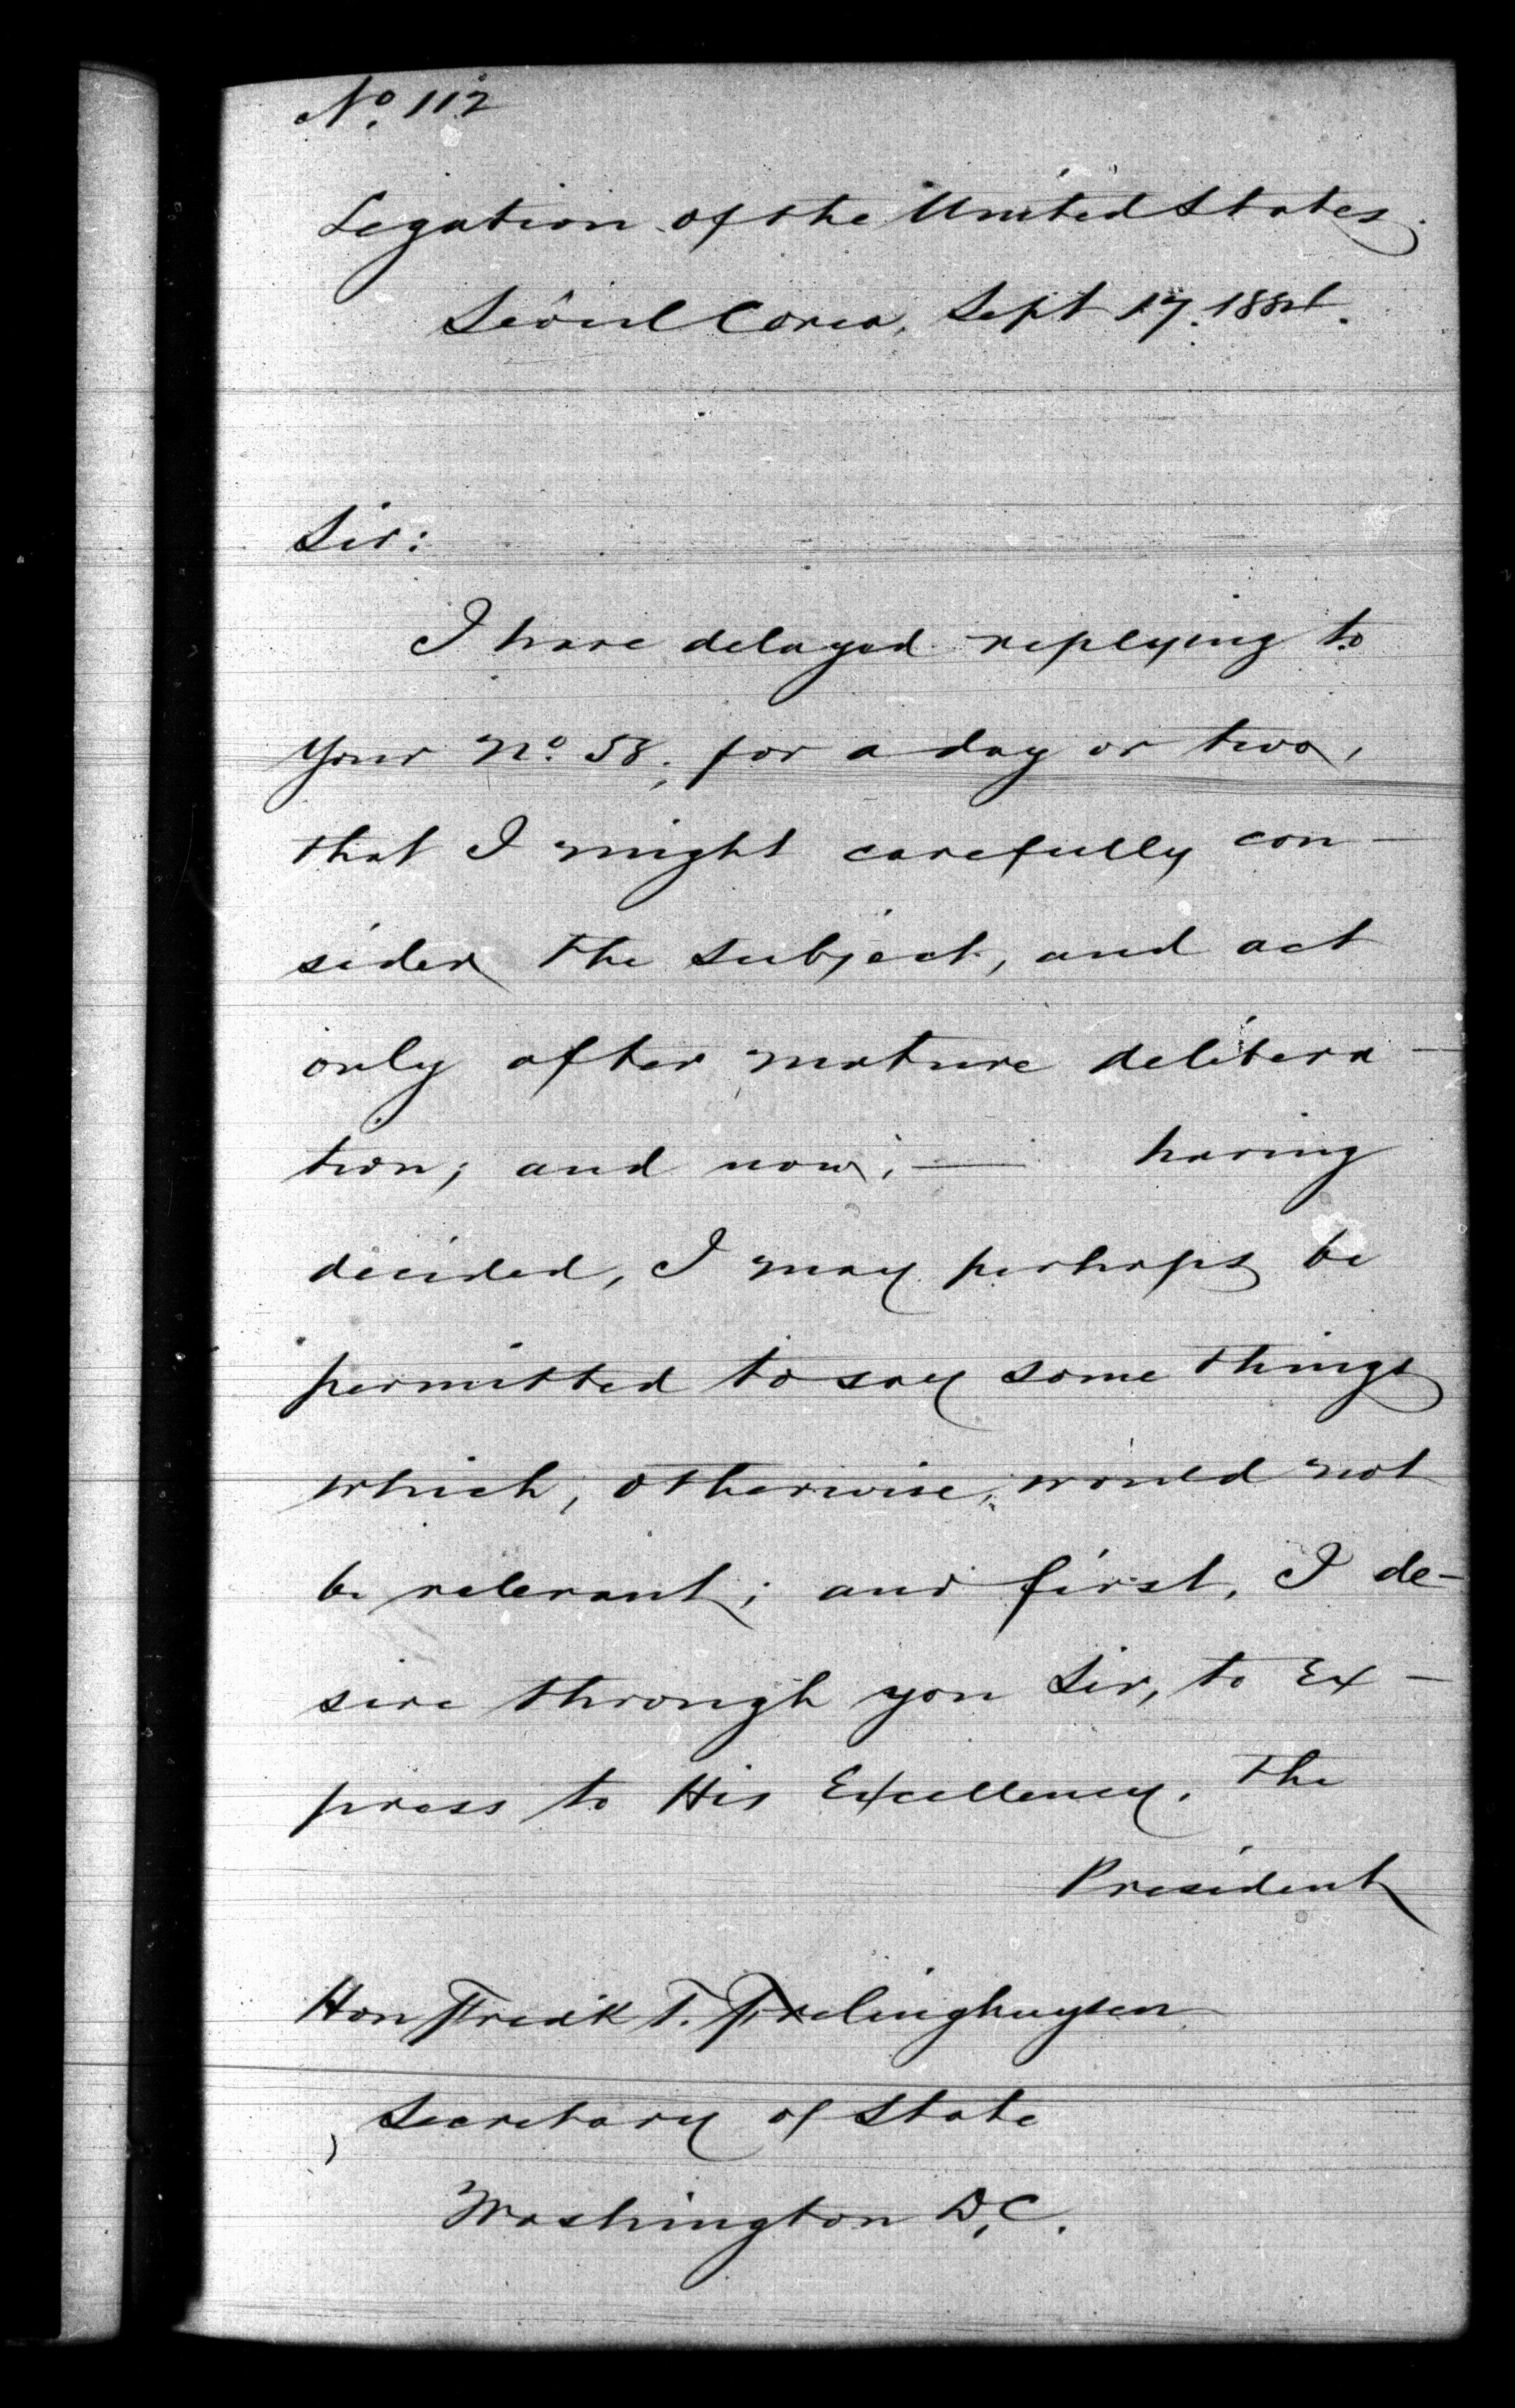 Nº 112
Legation of the United States.
Seöul Corea, Sept 17. 1884.
Sir:
I have delayed replying to
your Nº 58, for a day or two,
that I might carefully con-
sider the subject, and act
only after mature delibera-
tion; and now, — having
decided, I may perhaps be
permitted to say some things
which, otherwise, would not
be relevant; and first, I de-
sire through you Sir, to Ex-
press to His Excellency, the
President
Hon Fredk T. Frelinghuysen
Secretary of State
Washington D.C.